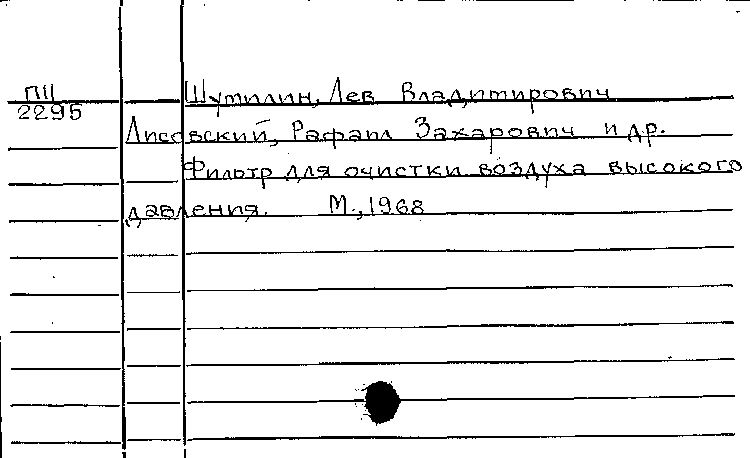 ПЩ
2295
Шутилин, Лев Владимирович
Лисовский, Рафаил Захарович и др.
Фильтр для очистки воздуха высокого
давления. М., 1968